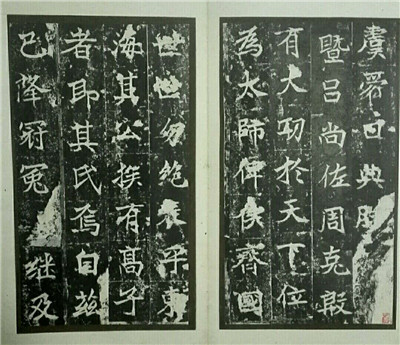 虞曰典朕
暨呂尚佐周克殷
有大功於天下位
為太師俾侯齊國
世世勿絕表乎東
海其公族有高子
者即其氏焉自茲
已降冠冕繼及